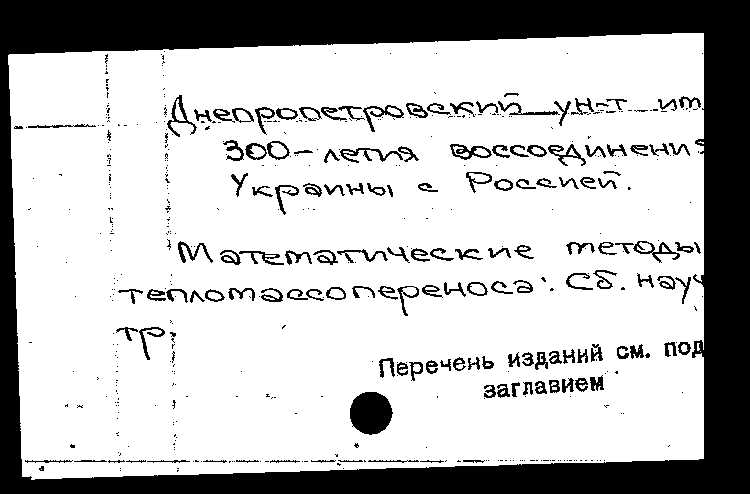 Днепропетровский ун-т им
300-летия воссоединения
Украины с Россией.
Математические методы
тепломассопереноса: Сб. науч
тр.
Перечень изданий см. под
заглавием